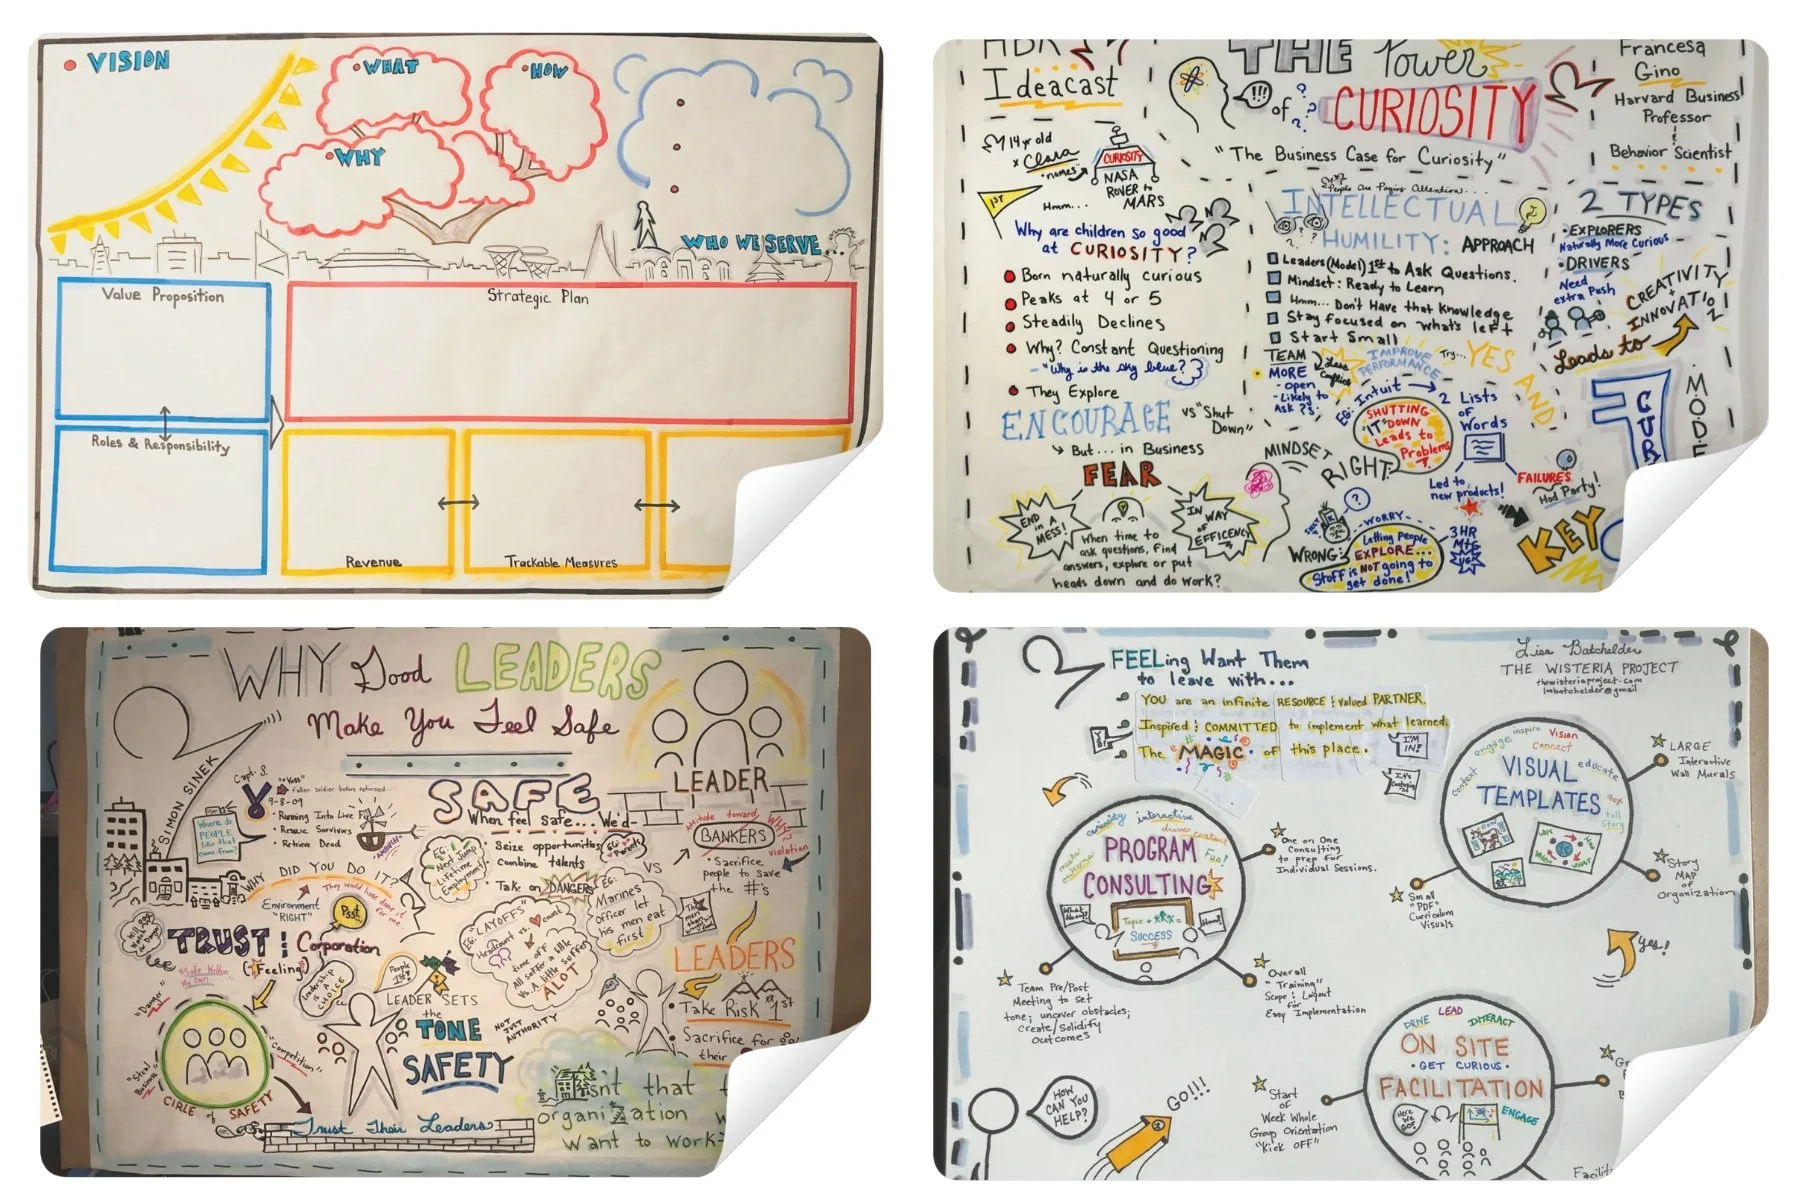 VISION
WHAT
HOW
WHY
WHO WE SERVE
Value Proposition
Strategic Plan
Roles & Responsibility
Revenue
Trackable Measures
HBR
Ideacast
THE Power
of
CURIOSITY
"The Business Case for Curiosity"
Francesa
Gino
Harvard Business
Professor
Behavior Scientist
14 yr old
Clara
names
CURIOSITY
NASA
ROVER to
MARS
1ST
Hmm...
Why are children so good
at CURIOSITY?
Born naturally curious
Peaks at 4 or 5
Steadily Declines
Why? Constant Questioning
- "Why is the sky blue?"
They Explore
ENCOURAGE vs "Shut
Down"
But... in Business
FEAR
END
in A
MESS!
When time to
ask questions, find
answers, explore or put
heads down and do work?
IN WAY
OF
EFFICENCY
People Are Paying Attention...
INTELLECTUAL
HUMILITY: APPROACH
Leaders (Model) 1st to Ask Questions.
Mindset: Ready to Learn
Hmm... Don't Have that Knowledge
Stay focused on what's left
Start Small
TEAM
MORE
- open
- Likely to
Ask ?s.
Less
Conflict
IMPROVE
PERFORMANCE
Try... YES AND
EG: Intuit → 2 Lists
of
Words
SHUTTING
"IT" DOWN
Leads to
Problems
Led to
new products!
FAILURES
Had Party!
MINDSET
RIGHT
WRONG:
WORRY
Letting People
EXPLORE...
Stuff is NOT going to
get done!
3 HR
Mtg
2 TYPES
EXPLORERS
Naturally More Curious
DRIVERS
Need
extra Push
CREATIVITY
+
INNOVATION
Leads to
CUR
MODE
KEY
WHY Good LEADERS
Make You Feel Safe
SIMON SINEK
Capt. S.
"Kiss"
fallen soldier before returned...
9-8-09
Running Into Live Fire
Rescue Survivors
Retrieve Dead
"AMBUSH"
Where do
PEOPLE
like that
come from?
WHY DID YOU DO IT?
They would have done it
for me
Environment
"RIGHT"
Psst
TRUST & Corporation
(Feeling)
Leadership
is A
CHOICE
"Safe Within
My Own"
"Danger"
"Steal
Business"
"Competition"
CIRLE of SAFETY
Trust Their Leaders
SAFE
When feel safe... We'd-
Seize opportunities
Combine talents
Take on DANGERS
EG:
Next Jump
Lifetime
Employment!
EG:
Parents
VS
EG:
Marines
officer let
his men eat
first
EG:
"LAYOFFS"
Headcount vs. ♥ count
time off
All suffer a little
vs. A little suffers
ALOT
People
1st
LEADER SETS
the
TONE
SAFETY
NOT
JUST
AUTHORITY
LEADER
Attitude toward
BANKERS
WHY?
violation
Sacrifice
people to save
the #'s
LEADERS
Take Risk 1st
Sacrifice for
their
Isn't that
organization
Want to work
FEELing Want Them
to leave with...
YOU are an infinite RESOURCE & valued PARTNER.
Inspired & COMMITTED to implement what learned.
The MAGIC of this place.
YES!
I'M
IN!
Lisa Batchelder
THE WISTERIA PROJECT
thewisteriaproject.com
lmbatchelder@gmail
curiosity interactive
Fun!
PROGRAM
CONSULTING
What
About?
Topic +
SUCCESS
Hmm!
One on One
Consulting
to prep for
Individual Sessions.
Team Pre/Post
Meeting to set
tone; uncover obstacles;
Create/Solidify
Outcomes
Overall
"Training"
Scope & Layout
for
Easy Implementation
engage inspire Vision
connect
content
educate
tell
story
VISUAL
TEMPLATES
WHY
WHAT
LARGE
Interactive
Wall Murals
Story
MAP
of
Organization
Small
"PDF"
Curriculum
Visuals
Yes!
DRIVE LEAD INTERACT
ON SITE
GET CURIOUS
FACILITATION
Here
We
GO!
ENGAGE
Start
of
Week Whole
Group Orientation
"Kick OFF"
Facilit
HOW
CAN YOU
HELP?
GO!!!